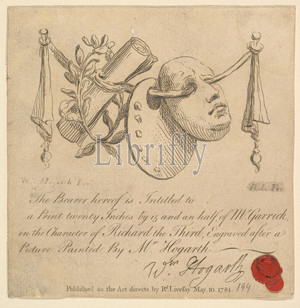 Librifly
The Bearer hereof is Intitled to
a Print twenty Inches by 15 and an half of Mr. Garrick
in the Character of Richard the Third, Engraved after a
Picture Painted By Mr. Hogarth.
Wm. Hogarth
Publish'd as the Act directs by Rd. Livesay May. 10. 1784.